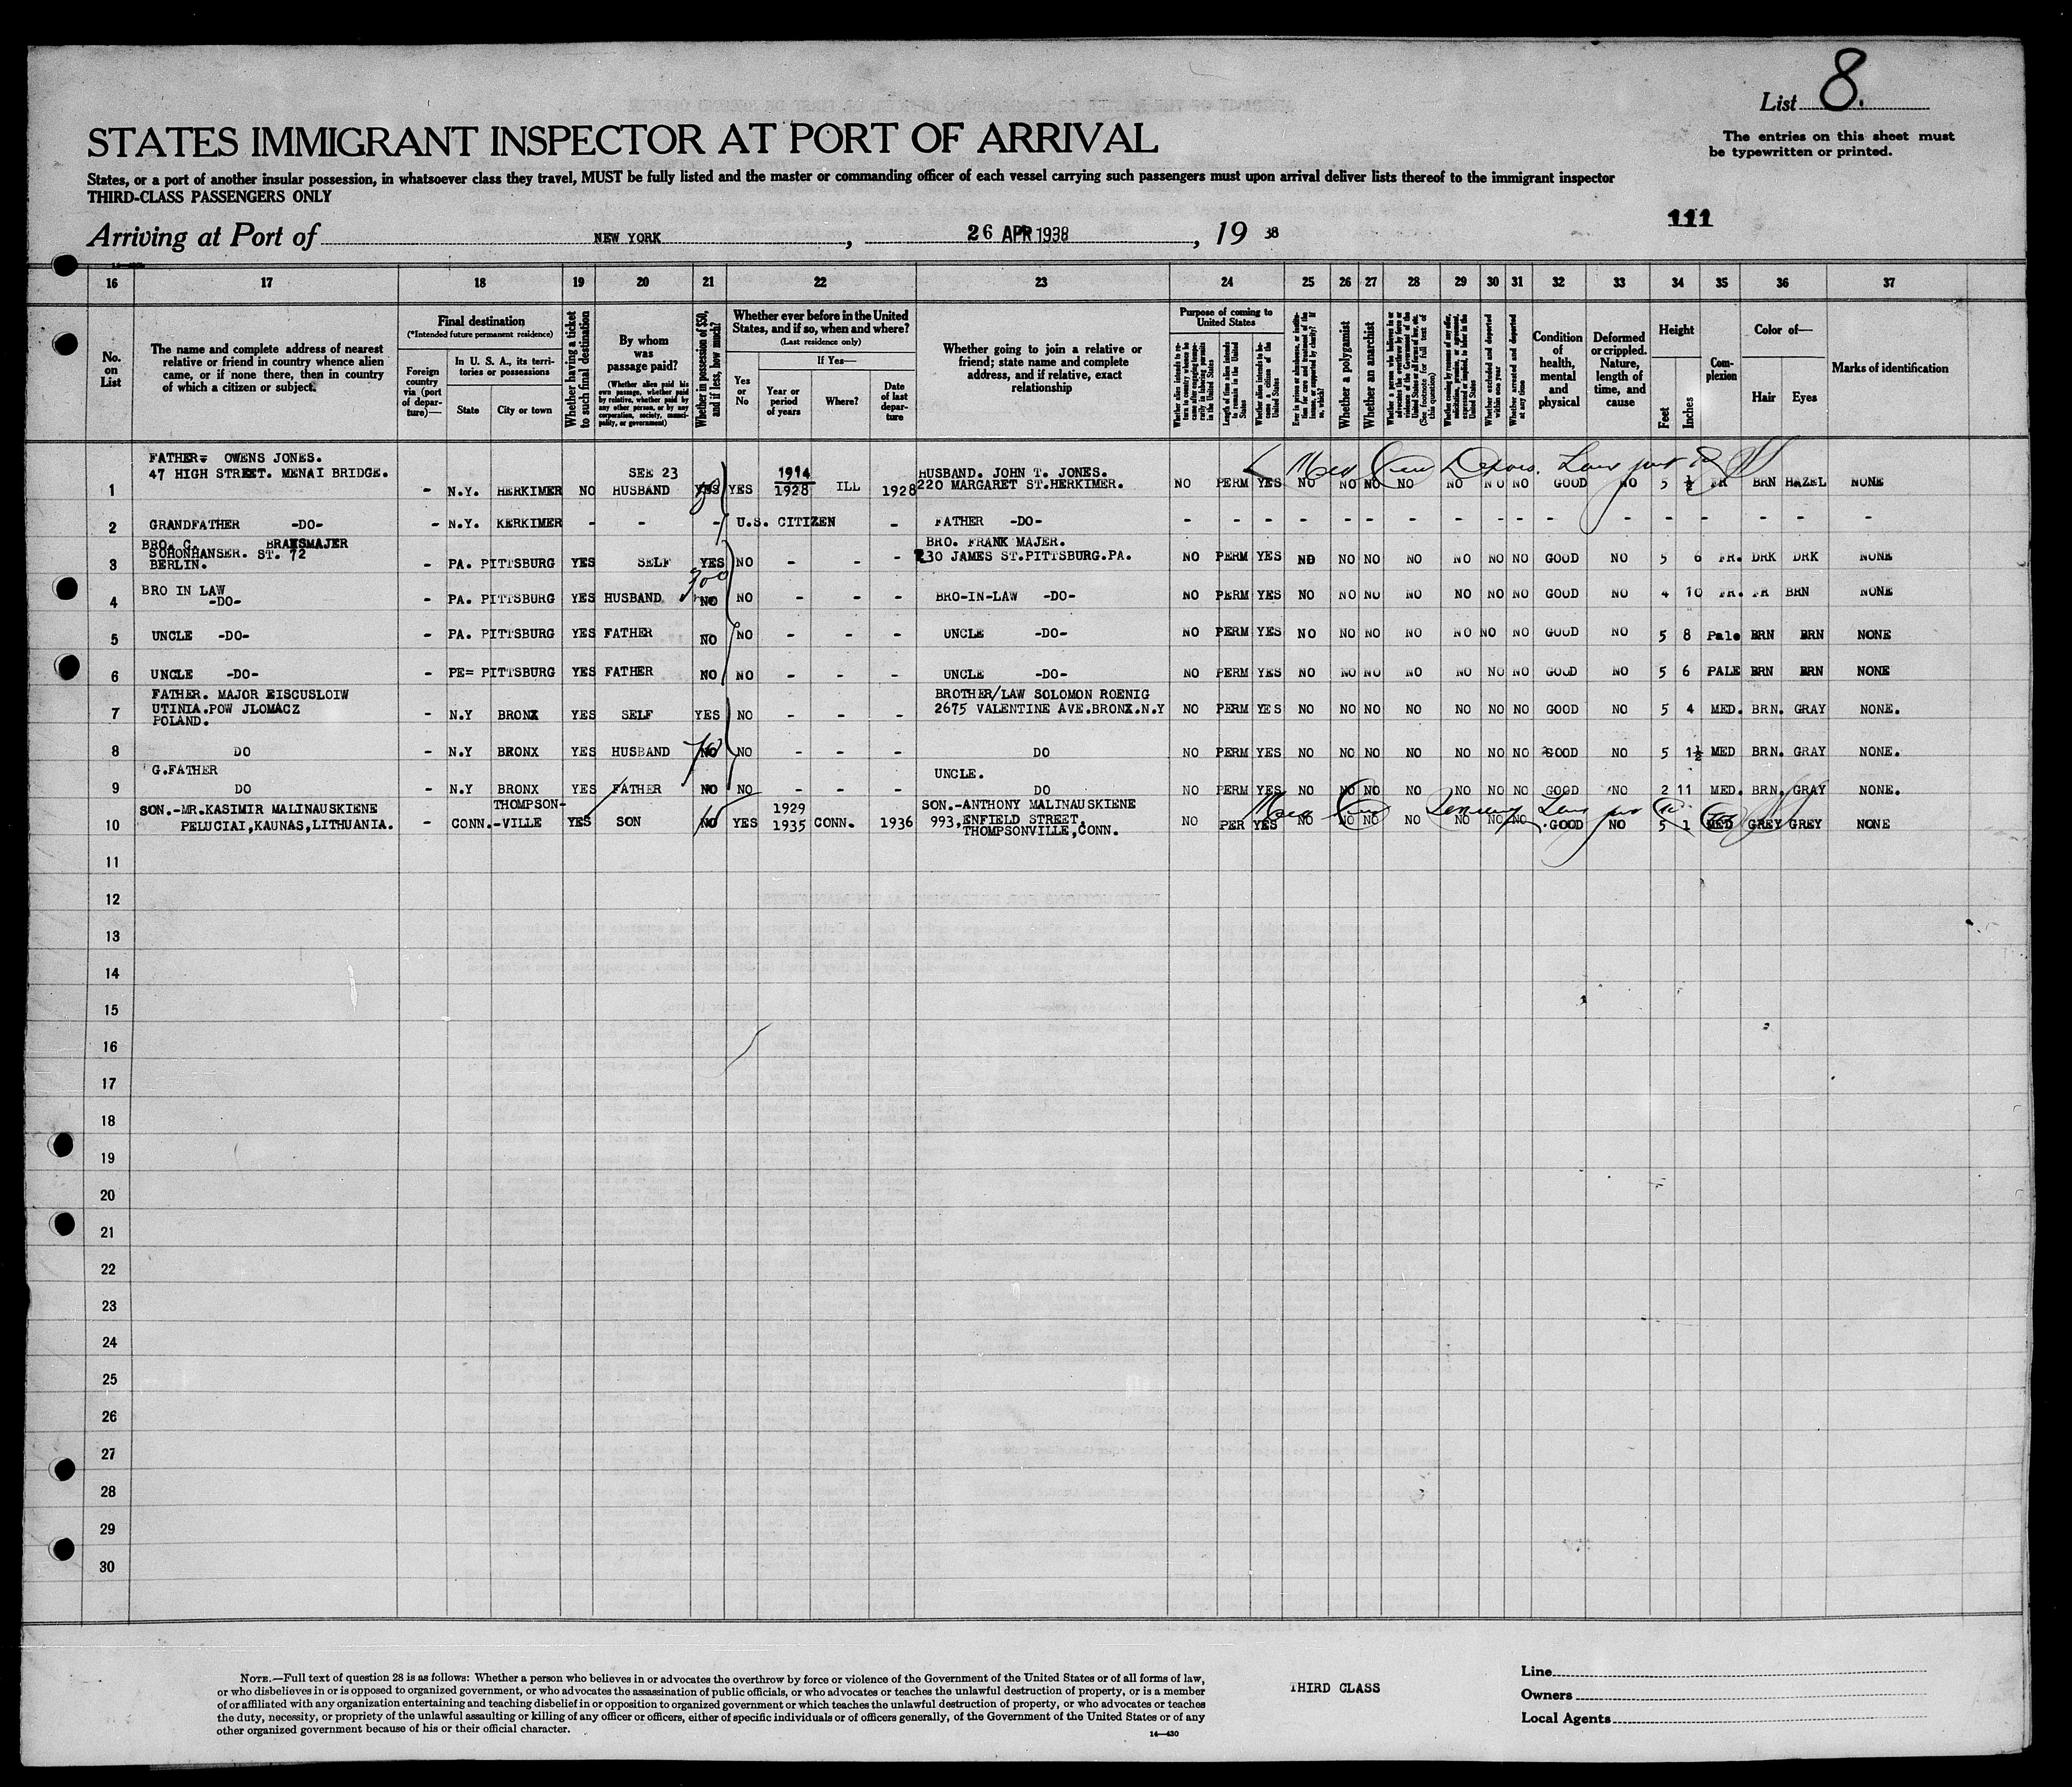 List 8.
The entries on this sheet must
be typewritten or printed.
STATES IMMIGRANT INSPECTOR AT PORT OF ARRIVAL
States, or a port of another insular possession, in whatsoever class they travel, MUST be fully listed and the master or commanding officer of each vessel carrying such passengers must upon arrival deliver lists thereof to the immigrant inspector
THIRD-CLASS PASSENGERS ONLY
111
Arriving at Port of NEW YORK, 26 APR 1938, 19 38
16 17 18 19 20 21 22 23 24 25 26 27 28 29 30 31 32 33 34 35 36 37
No. on List
The name and complete address of nearest
relative or friend in country whence alien
came, or if none there, then in country
of which a citizen or subject.
Final destination
(*Intended future permanent residence)
Foreign country via (port of departure)—
In U. S. A., its territories or possessions
State
City or town
Whether having a ticket to such final destination
By whom was passage paid?
(Whether alien paid his own passage, whether paid by relative, whether paid by any other person, or by any corporation, society, municipality, or government)
Whether in possession of $50, and if less, how much?
Whether ever before in the United States, and if so, when and where?
(Last residence only)
Yes or No
If Yes—
Year or period of years
Where?
Date of last departure
Whether going to join a relative or
friend; state name and complete
address, and if relative, exact
relationship
Purpose of coming to United States
Length of time alien intends to remain in the United States
Whether alien intends to become a citizen of the United States
Whether a polygamist
Whether an anarchist
Whether excluded and deported within one year
Whether arrested and deported at any time
Condition of health, mental and physical
Deformed or crippled. Nature, length of time, and cause
Height
Feet
Inches
Complexion
Color of—
Hair
Eyes
Marks of identification
FATHER= OWENS JONES.
47 HIGH STREET. MENAI BRIDGE. SEE 23 1914 HUSBAND. JOHN T. JONES.
1 - N.Y. HERKIMER NO HUSBAND YES YES 1928 ILL 1928 220 MARGARET ST.HERKIMER. NO PERM YES NO NO NO NO NO NO NO GOOD NO 5 ½ FR BRN HAZEL NONE
2 GRANDFATHER -DO- - N.Y. KERKIMER - - - U.S. CITIZEN - FATHER -DO- - - - - - - - - - - - - - - - - - -
BRO. G. BRANSMAJER BRO. FRANK MAJER.
SOHONHANSER. ST. 72 230 JAMES ST.PITTSBURG.PA.
3 BERLIN. - PA. PITTSBURG YES SELF YES NO - - - NO PERM YES NO NO NO NO NO NO NO GOOD NO 5 6 FR. DRK DRK NONE
BRO IN LAW 700
4 -DO- - PA. PITTSBURG YES HUSBAND NO NO - - - BRO-IN-LAW -DO- NO PERM YES NO NO NO NO NO NO NO GOOD NO 4 10 FR. FR BRN NONE
5 UNCLE -DO- - PA. PITTSBURG YES FATHER NO NO - - - UNCLE -DO- NO PERM YES NO NO NO NO NO NO NO GOOD NO 5 8 Pale BRN BRN NONE
6 UNCLE -DO- - PE= PITTSBURG YES FATHER NO NO - - - UNCLE -DO- NO PERM YES NO NO NO NO NO NO NO GOOD NO 5 6 PALE BRN BRN NONE
FATHER. MAJOR EISCUSLOIW BROTHER/LAW SOLOMON ROENIG
UTINIA.POW JLOMACZ 2675 VALENTINE AVE.BRONX.N.Y
7 POLAND. - N.Y BRONX YES SELF YES NO - - - NO PERM YES NO NO NO NO NO NO NO GOOD NO 5 4 MED. BRN. GRAY NONE.
8 DO - N.Y BRONX YES HUSBAND NO NO - - - DO NO PERM YES NO NO NO NO NO NO NO GOOD NO 5 1½ MED BRN. GRAY NONE.
G.FATHER UNCLE.
9 DO - N.Y BRONX YES FATHER NO NO - - - DO NO PERM YES NO NO NO NO NO NO NO GOOD NO 2 11 MED. BRN. GRAY NONE.
SON.-MR.KASIMIR MALINAUSKIENE THOMPSON- 1929 SON.-ANTHONY MALINAUSKIENE
10 PELUCIAI,KAUNAS,LITHUANIA. - CONN.-VILLE YES SON NO YES 1935 CONN. 1936 993,ENFIELD STREET, THOMPSONVILLE,CONN. NO PER YES NO NO NO NO NO NO NO GOOD NO 5 1 MED GREY GREY NONE
11
12
13
14
15
16
17
18
19
20
21
22
23
24
25
26
27
28
29
30
NOTE.—Full text of question 28 is as follows: Whether a person who believes in or advocates the overthrow by force or violence of the Government of the United States or of all forms of law,
or who disbelieves in or is opposed to organized government, or who advocates the assassination of public officials, or who advocates or teaches the unlawful destruction of property, or is a member
of or affiliated with any organization entertaining and teaching disbelief in or opposition to organized government or which teaches the unlawful destruction of property, or who advocates or teaches
the duty, necessity, or propriety of the unlawful assaulting or killing of any officer or officers, either of specific individuals or of officers generally, of the Government of the United States or of any
other organized government because of his or their official character.
14—430
THIRD CLASS
Line
Owners
Local Agents